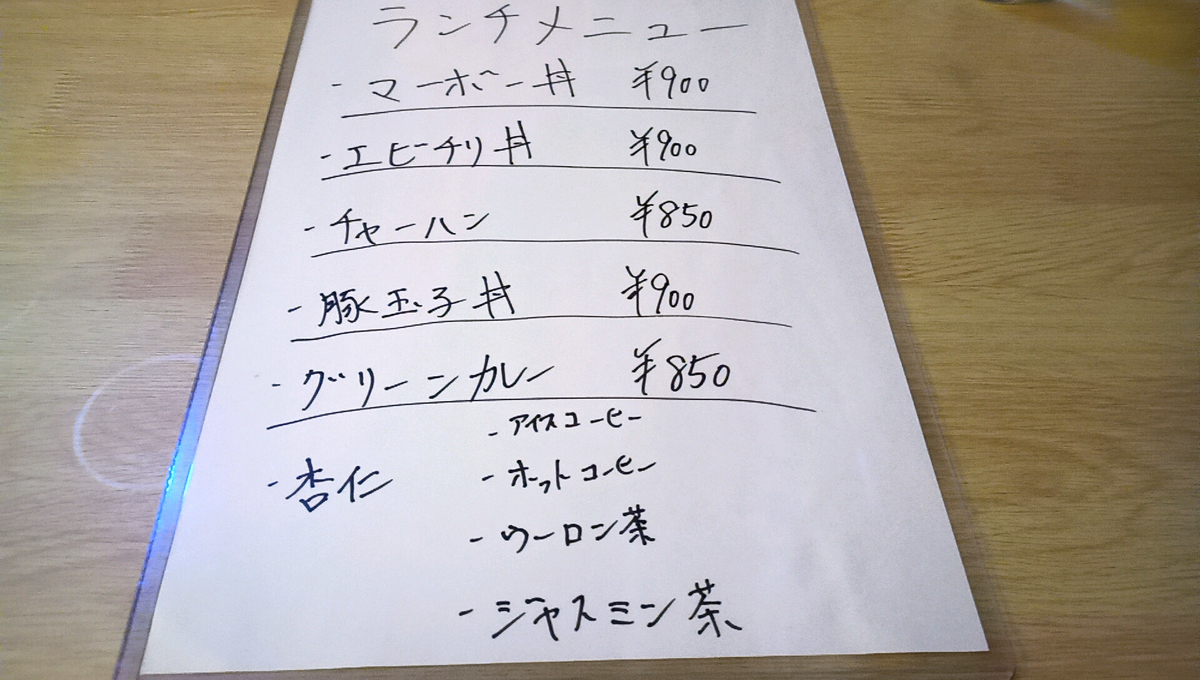 ランチメニュー
・マーボー丼 ¥900
・エビーチリ丼 ¥900
・チャーハン ¥850
・豚玉子丼 ¥900
・グリーンカレー ¥850
・アイスコーヒー
・杏仁 ・ホットコーヒー
・ウーロン茶
・ジャスミン茶